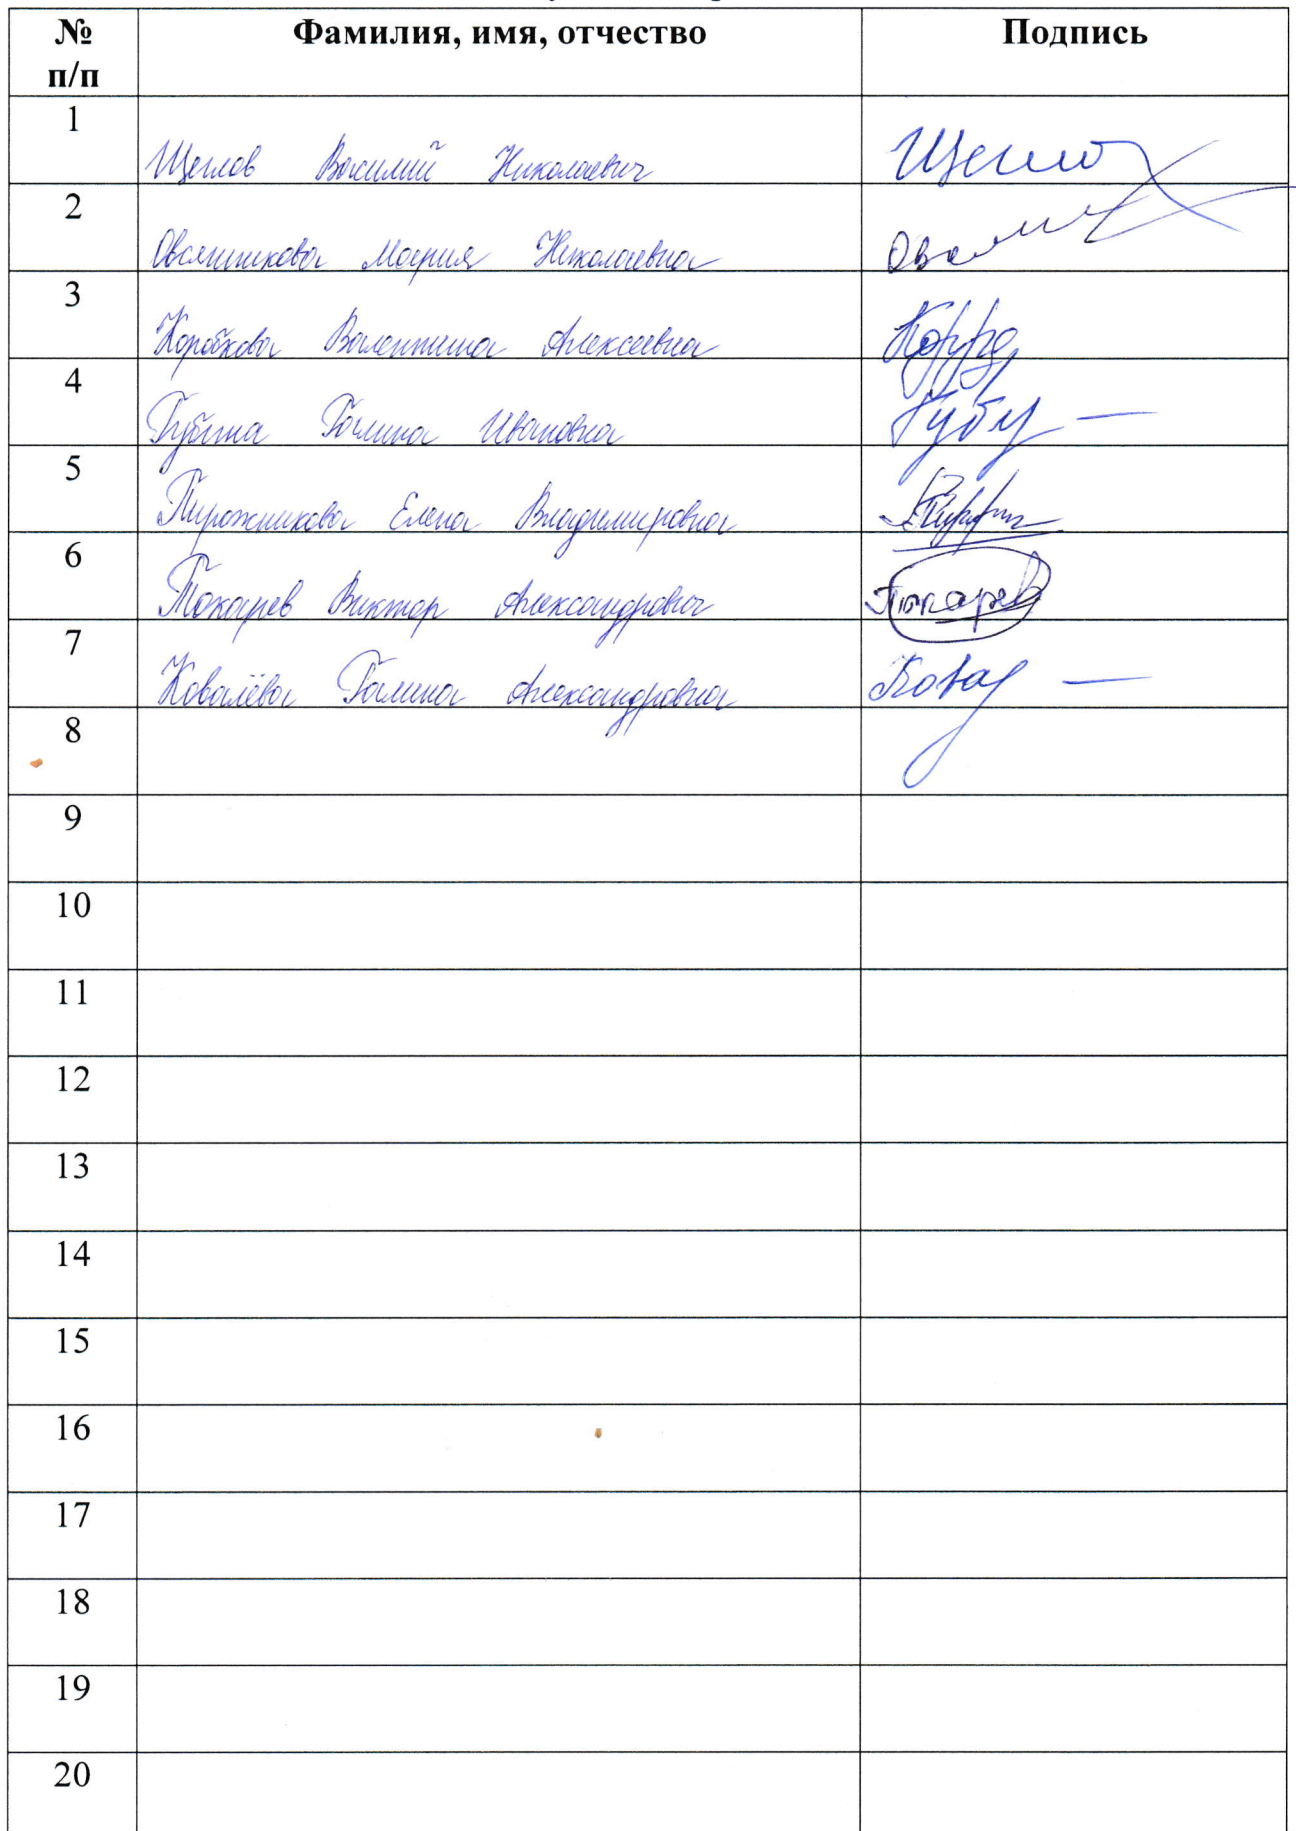 № Фамилия, имя, отчество Подпись
п/п
1
Щеглов Василий Николаевич
2
Овсянникова Мария Николаевна
3
Коробкова Валентина Алексеевна
4
Губина Галина Ивановна
5
Пирожникова Елена Владимировна
6
Токарев Виктор Александрович Токарев
7
Ковалёва Галина Александровна
8
9
10
11
12
13
14
15
16
17
18
19
20